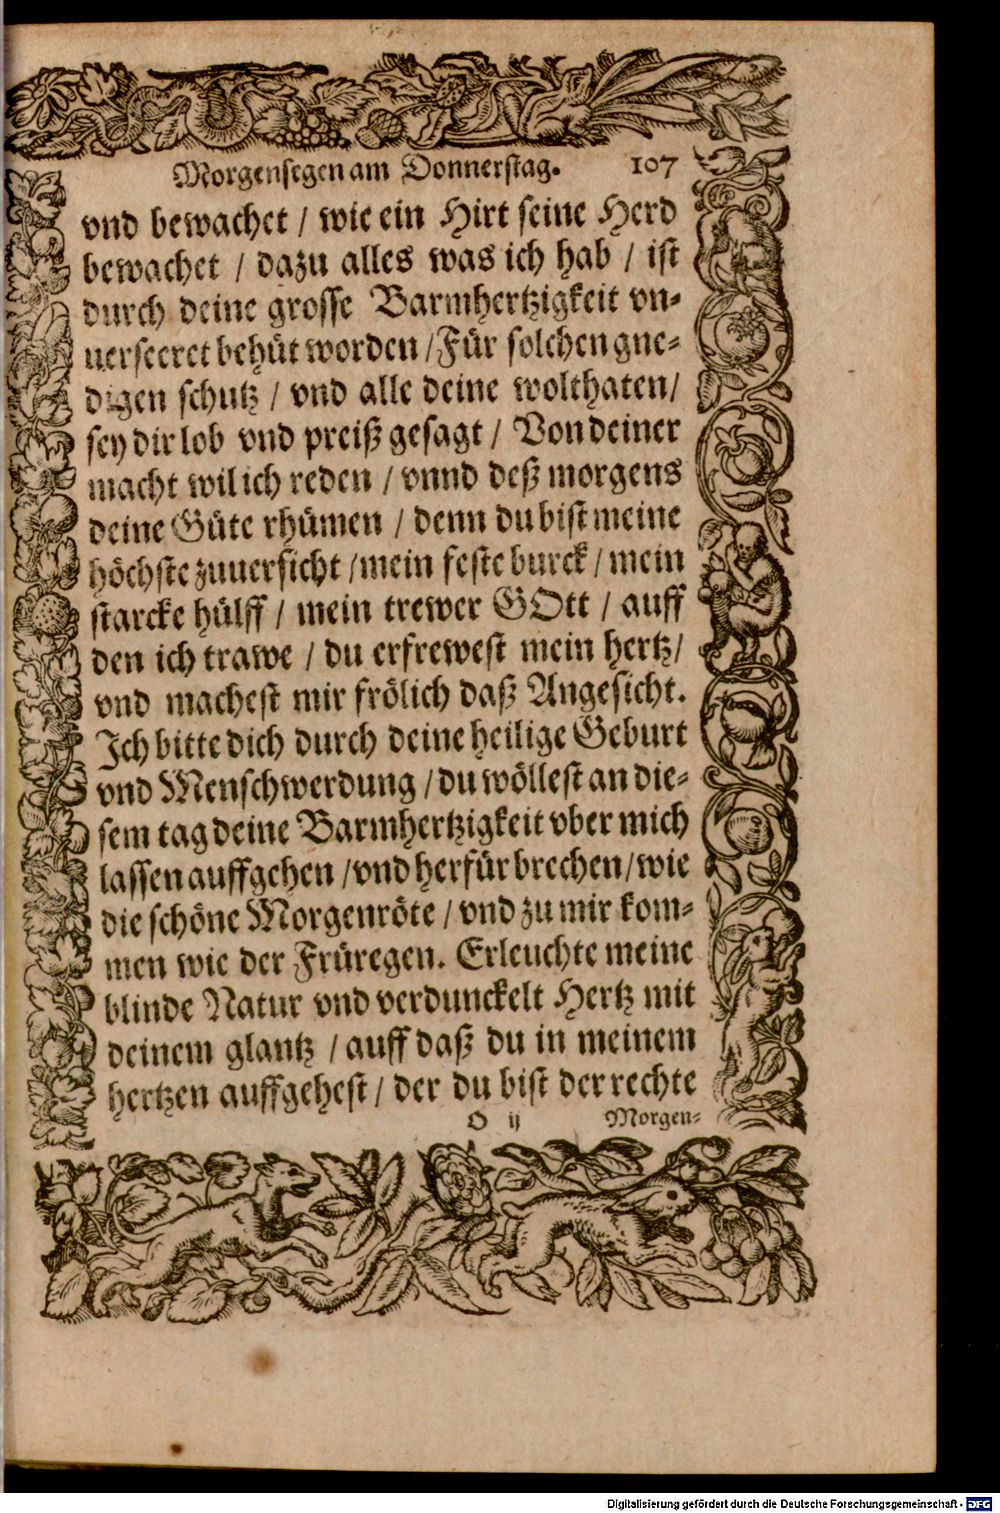 Morgensegen am Donnerstag. 107
vnd bewachet / wie ein Hirt seine Herd
bewachet / dazu alles was ich hab / ist
durch deine grosse Barmhertzigkeit vn-
uerseeret behüt worden / Für solchen gne-
digen schutz / vnd alle deine wolthaten /
sey dir lob vnd preiß gesagt / Von deiner
macht wil ich reden / vnnd deß morgens
deine Güte rhümen / denn du bist meine
höchste zuuersicht / mein feste burck / mein
starcke hülff / mein trewer GOtt / auff
den ich trawe / du erfrewest mein hertz /
vnd machest mir frölich daß Angesicht.
Ich bitte dich durch deine heilige Geburt
vnd Menschwerdung / du wöllest an die-
sem tag deine Barmhertzigkeit vber mich
lassen auffgehen / vnd herfür brechen / wie
die schöne Morgenröte / vnd zu mir kom-
men wie der Früregen. Erleuchte meine
blinde Natur vnd verdunckelt Hertz mit
deinem glantz / auff daß du in meinem
hertzen auffgehest / der du bist der rechte
O ij Morgen-
Digitalisierung gefördert durch die Deutsche Forschungsgemeinschaft - DFG